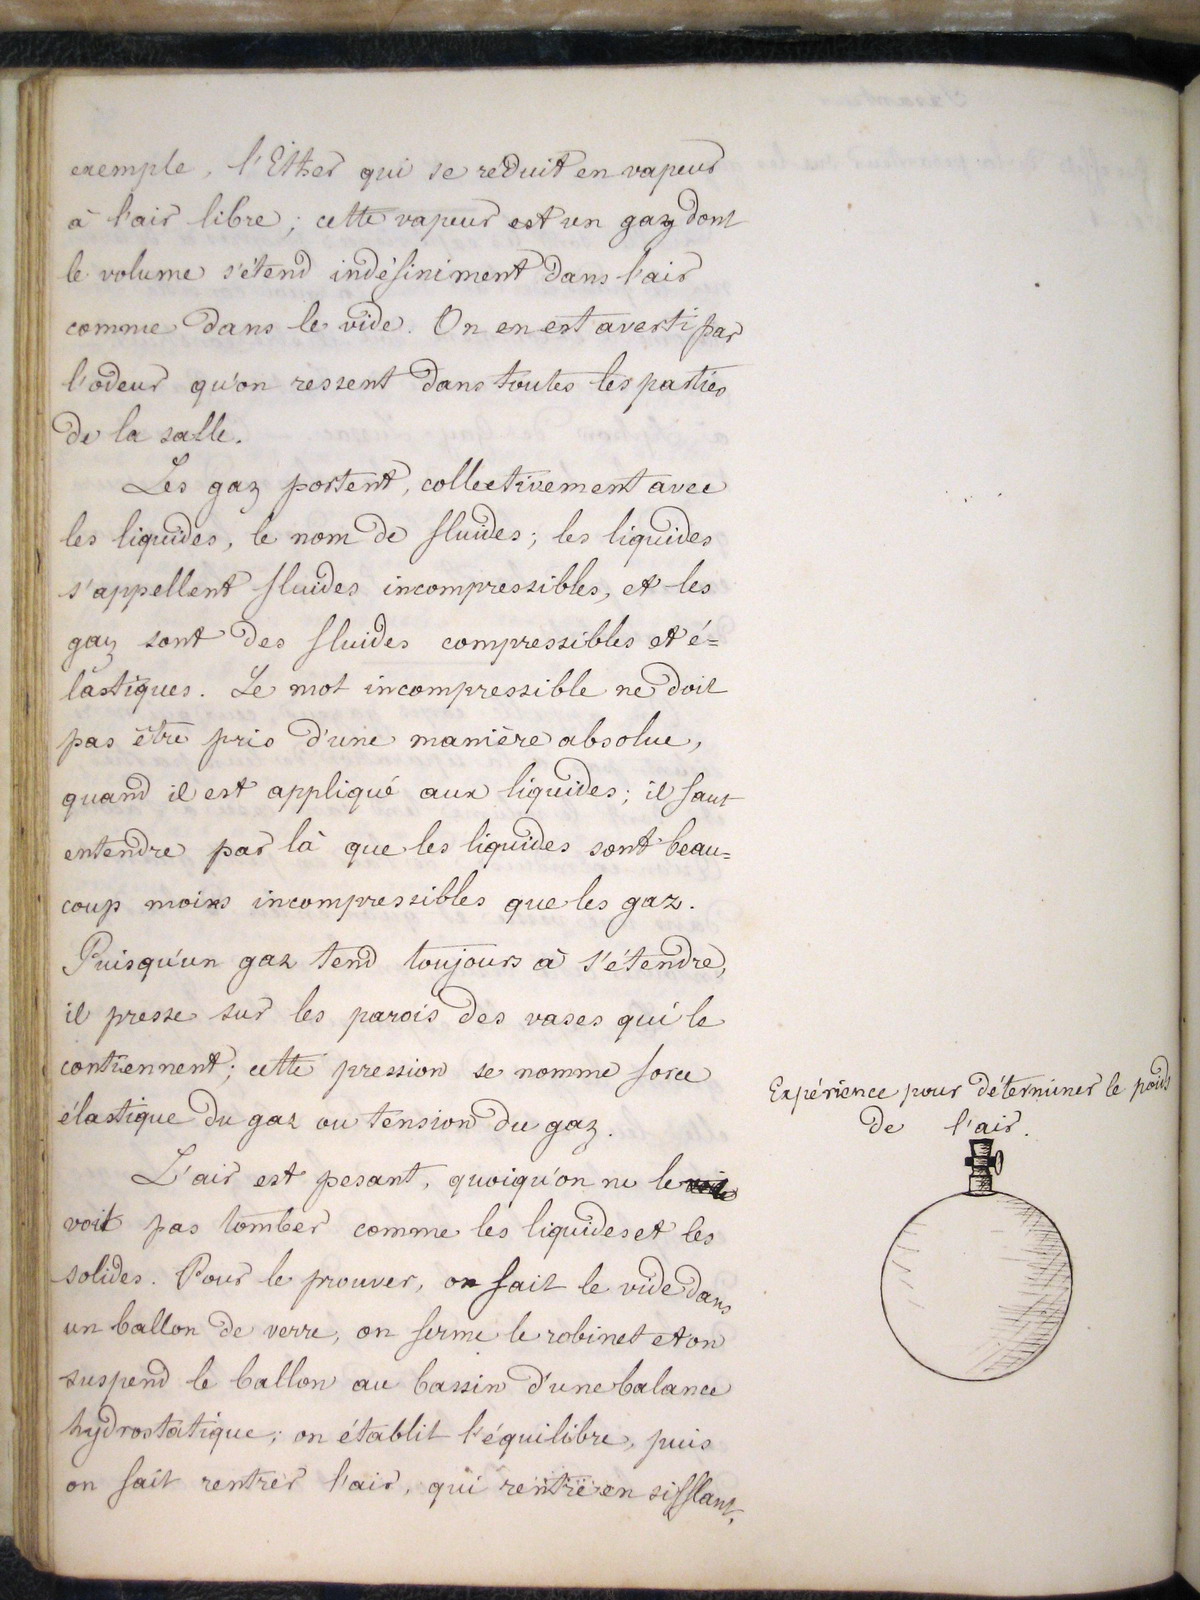 exemple, l'Ether qui se réduit en vapeur
à l'air libre; cette vapeur est un gaz dont
le volume s'étend indéfiniment dans l'air
comme dans le vide. On en est averti par
l'odeur qu'on ressent dans toutes les parties
de la salle.
Les gaz portent, collectivement avec
les liquides, le nom de fluides; les liquides
s'appellent fluides incompressibles, et les
gaz sont des fluides compressibles et é=
lastiques. Le mot incompressible ne doit
pas être pris d'une manière absolue,
quand il est appliqué aux liquides; il faut
entendre par là que les liquides sont beau=
coup moins incompressibles que les gaz.
Puisqu'un gaz tend toujours à s'étendre,
il presse sur les parois des vases qui le
contiennent; cette pression se nomme force
élastique du gaz ou tension du gaz.
L'air est pesant, quoiqu'on ne le
voit pas tomber comme les liquides et les
solides. Pour le prouver, on fait le vide dans
un ballon de verre, on ferme le robinet et on
suspend le ballon au bassin d'une balance
hydrostatique; on établit l'équilibre, puis
on fait rentrer l'air, qui rentre en sifflant.
Expérience pour déterminer le poids
de l'air.